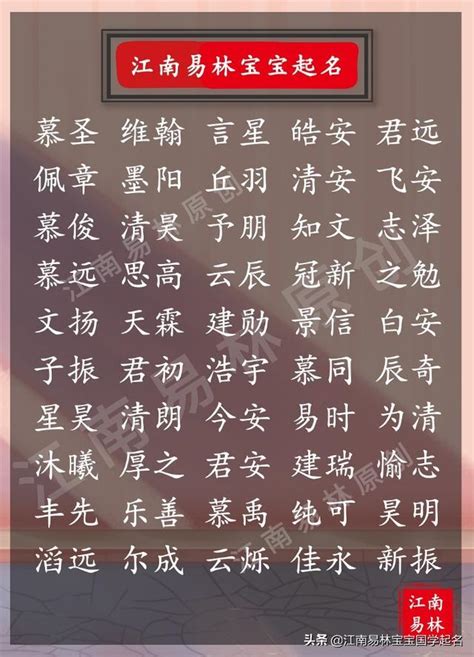 江南易林宝宝起名
慕圣 维翰 言星 皓安 君远
佩章 墨阳 丘羽 清安 飞安
慕俊 清昊 予朋 知文 志泽
慕远 思高 云辰 冠新 之勉
文扬 天霖 建勋 景信 白安
子振 君初 浩宇 慕同 辰奇
星昊 清朗 今安 易时 为清
沐曦 厚之 君安 建瑞 愉志
丰先 乐善 慕禹 纯可 昊明
滔远 尔成 云烁 佳永 新振
江南易林原创
江南易林原创
江南易林原创
江南
易林
头条 @江南易林宝宝国学起名